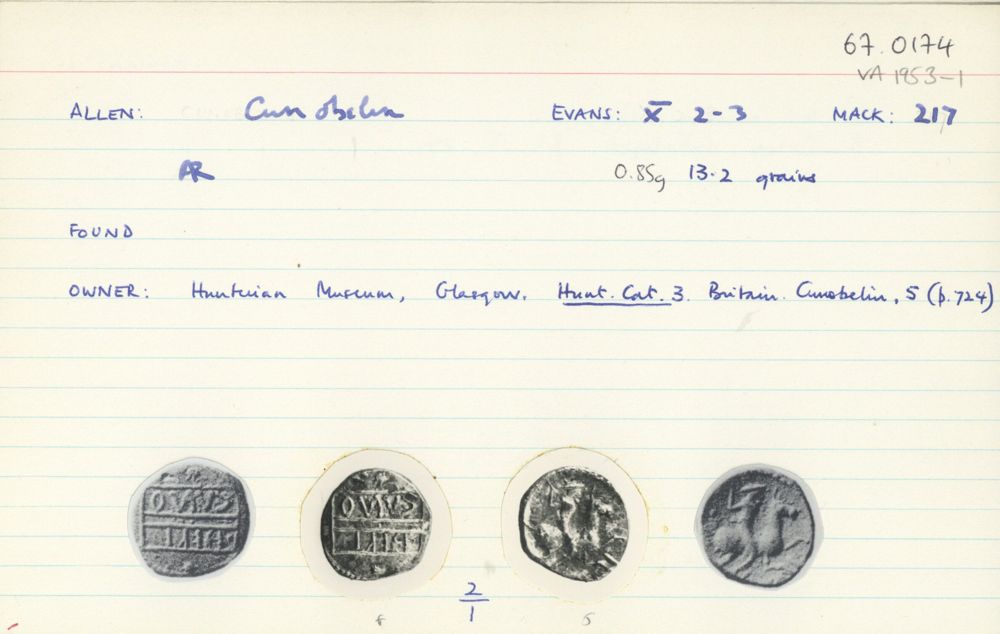 67.0174
VA 1953-1
ALLEN: Cunobelin EVANS: X 2-3 MACK: 217
AR 0.85g 13.2 grains
FOUND
OWNER: Hunterian Museum, Glasgow. Hunt. Cat. 3. Britain. Cunobelin, 5 (p.724)
CVNO
BELI
2
1